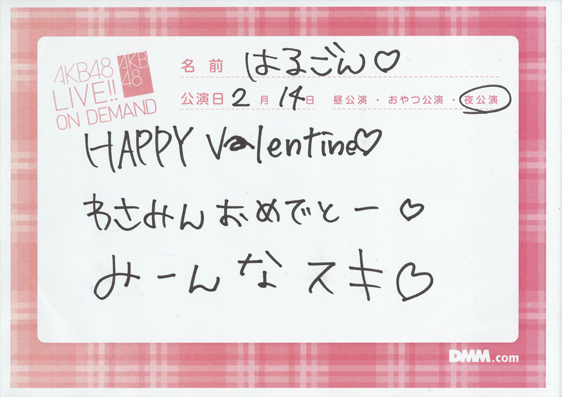 AKB48
LIVE!!
ON DEMAND
AKB
48
名前 はるごん♡
公演日 2月 14日 昼公演・おやつ公演・夜公演
HAPPY Valentine♡
わさみんおめでとー♡
みーんなスキ♡
DMM.com